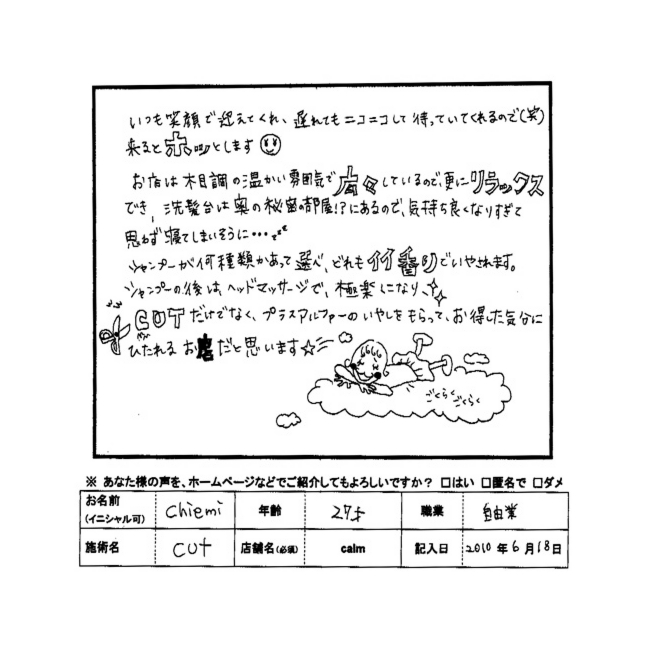 いつも笑顔で迎えてくれ、遅れてもニコニコして待っていてくれるので(笑)
来るとホッとします
お店は木目調の温かい雰囲気で広々しているので、更にリラックス
でき、洗髪台は奥の秘密の部屋!?にあるので、気持ち良くなりすぎて
思わず寝てしまいそうに…zzz
シャンプーが何種類かあって選べ、どれもイイ香りでいやされます。
シャンプーの後は、ヘッドマッサージで、極楽になり、
CUTだけでなく、プラスアルファーのいやしをもらって、お得した気分に
ひたれるお店だと思います☆
ごくらくごくらく
※ あなた様の声を、ホームページなどでご紹介してもよろしいですか? □はい □匿名で □ダメ
お名前 (イニシャル可) chiemi 年齢 27才 職業 自由業
施術名 cut 店舗名(必須) calm 記入日 2010年6月18日